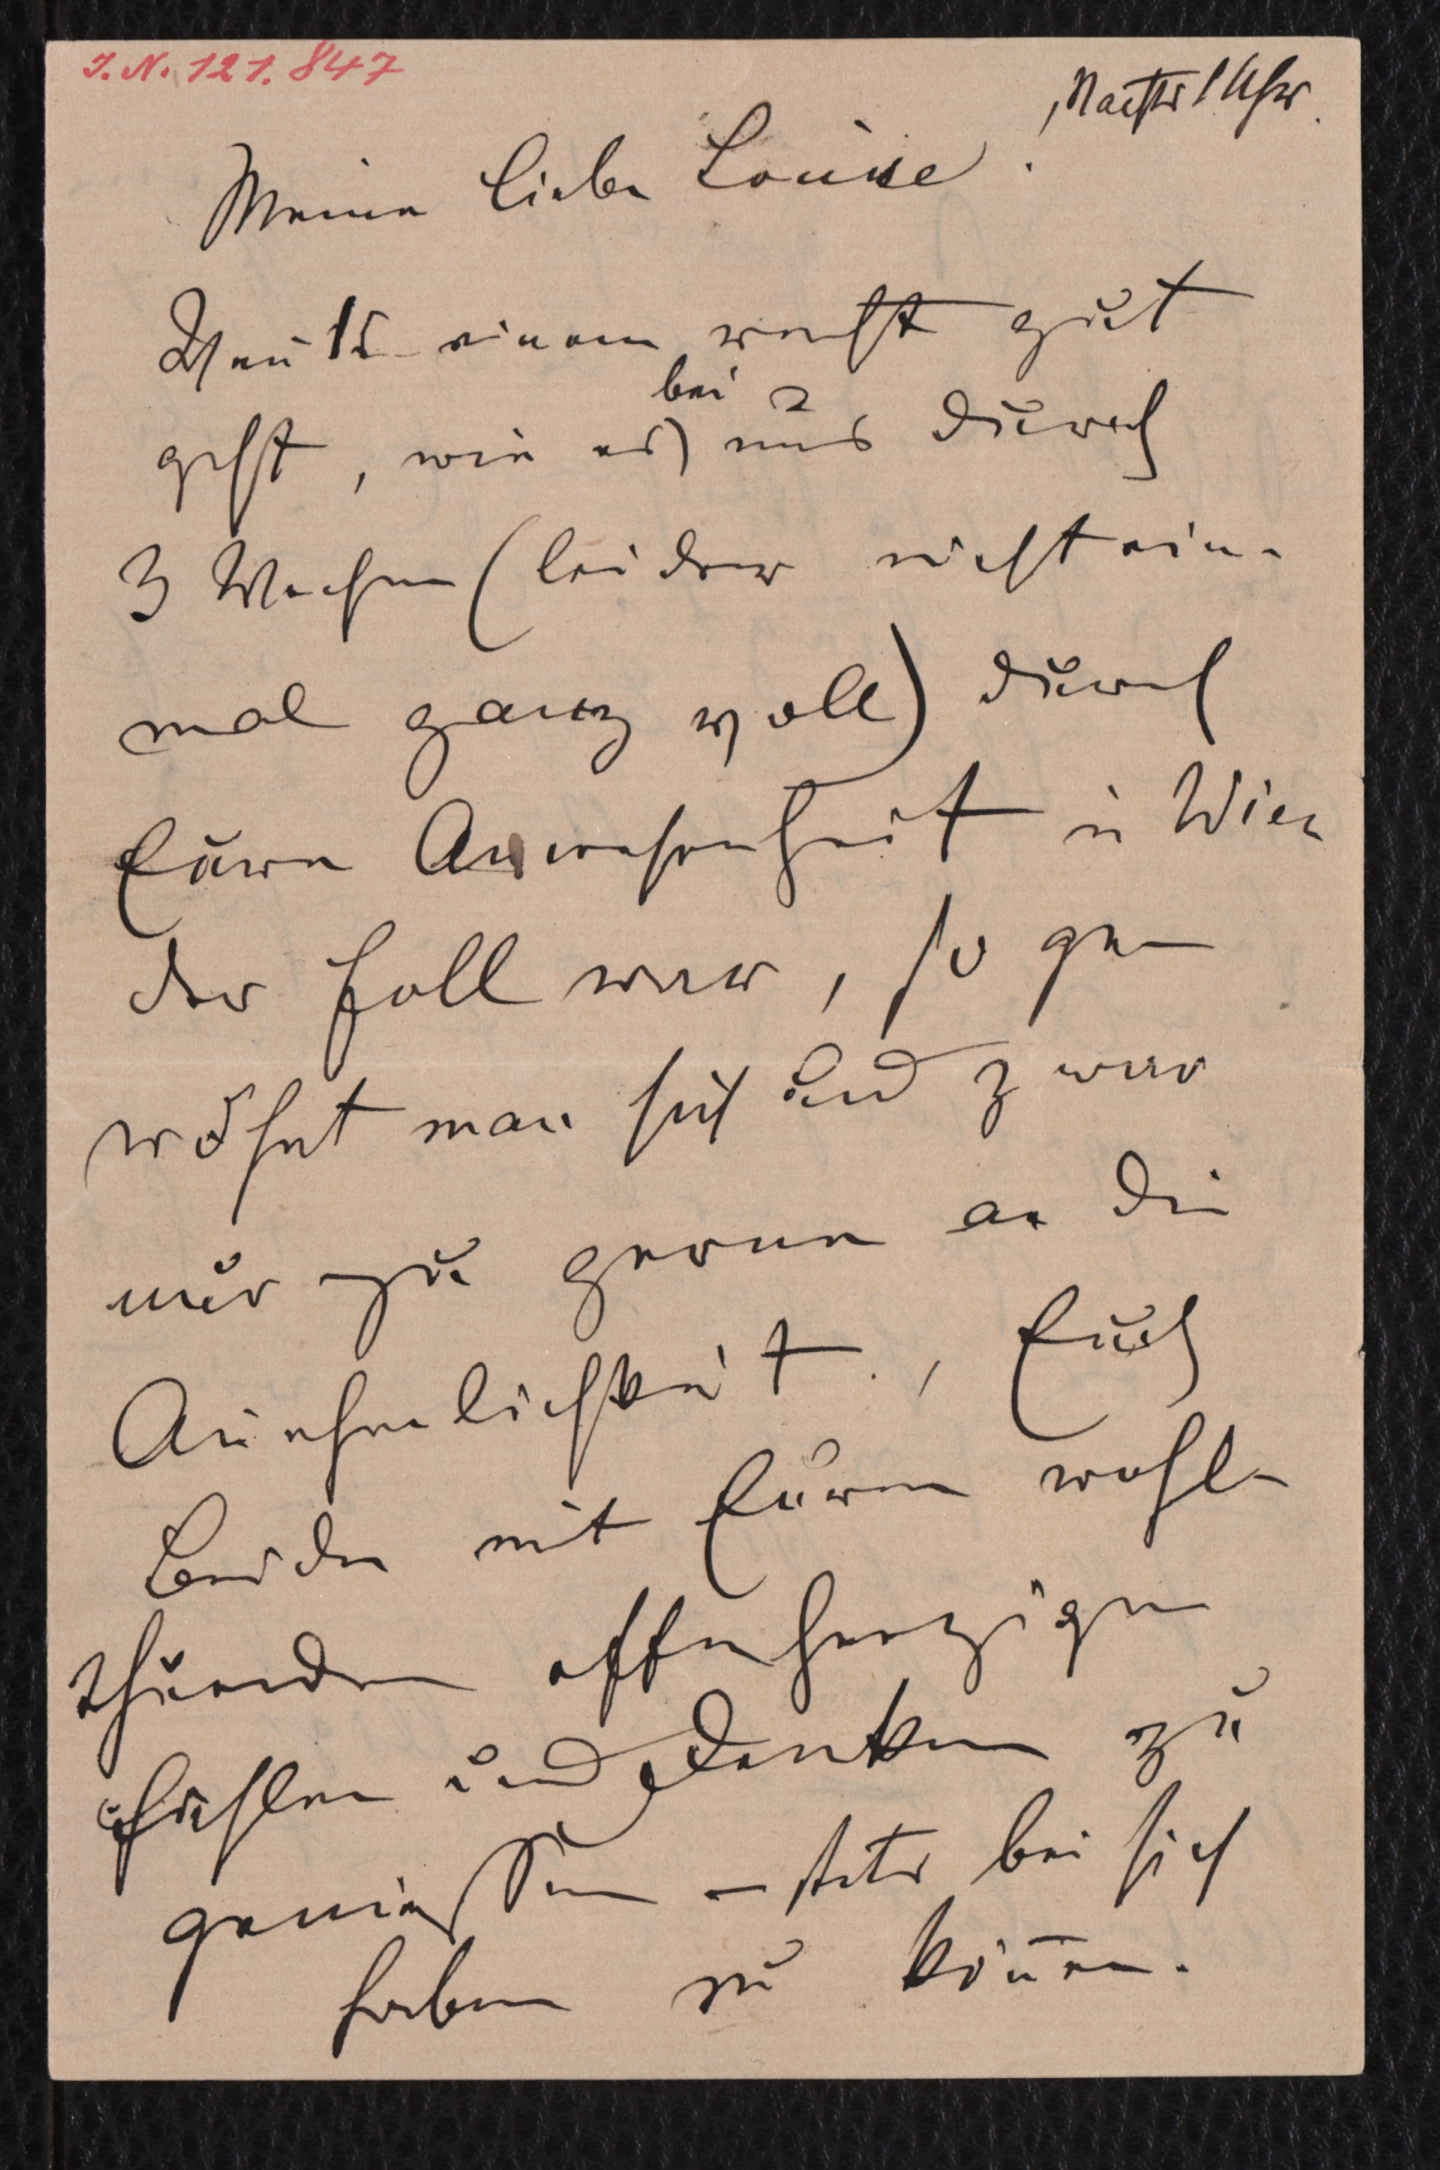 I. N. 121.847
Nachts 1 Uhr.
Meine liebe Louise.
Wenn's einem recht gut
geht, wie es bei uns durch
3 Wochen (leider nicht ein-
mal ganz voll) durch
Eure Anwesenheit in Wien
der Fall war, so ge-
wöhnt man sich und zwar
nur zu gerne an die
Annehmlichkeit, Euch
Beide mit Eurem wohl-
thuenden offenherzigen
Fühlen und Denken zu
geniessen – stets bei sich
haben zu können.